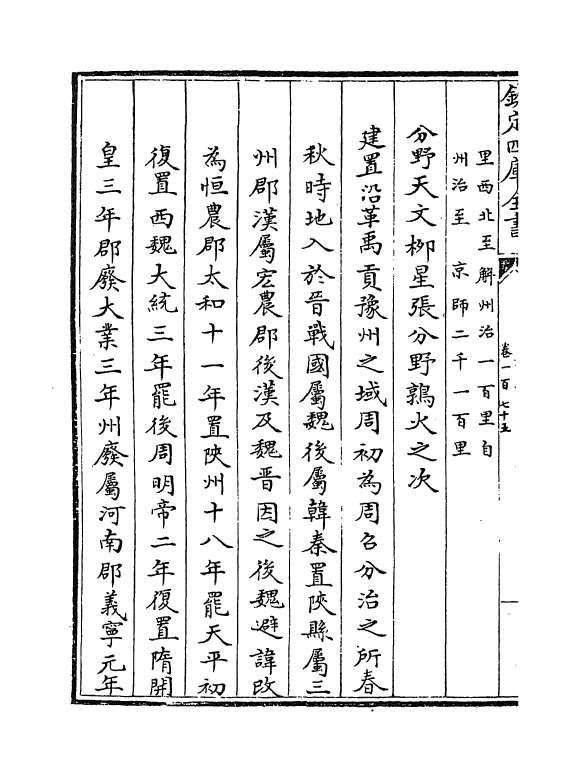 欽定四庫全書
卷一百七十五
里西北至解州治一百里自
州治至 京師二千一百里
分野天文栁星張分野鶉火之次
建置沿革禹貢豫州之域周初為周召分治之所春
秋時地入於晉戰國屬魏後屬韓秦置陜縣屬三
州郡漢屬宏農郡後漢及魏晉因之後魏避諱改
為恒農郡太和十一年置陜州十八年罷天平初
復置西魏大統三年罷後周明帝二年復置隋開
皇三年郡廢大業三年州廢屬河南郡義寧元年